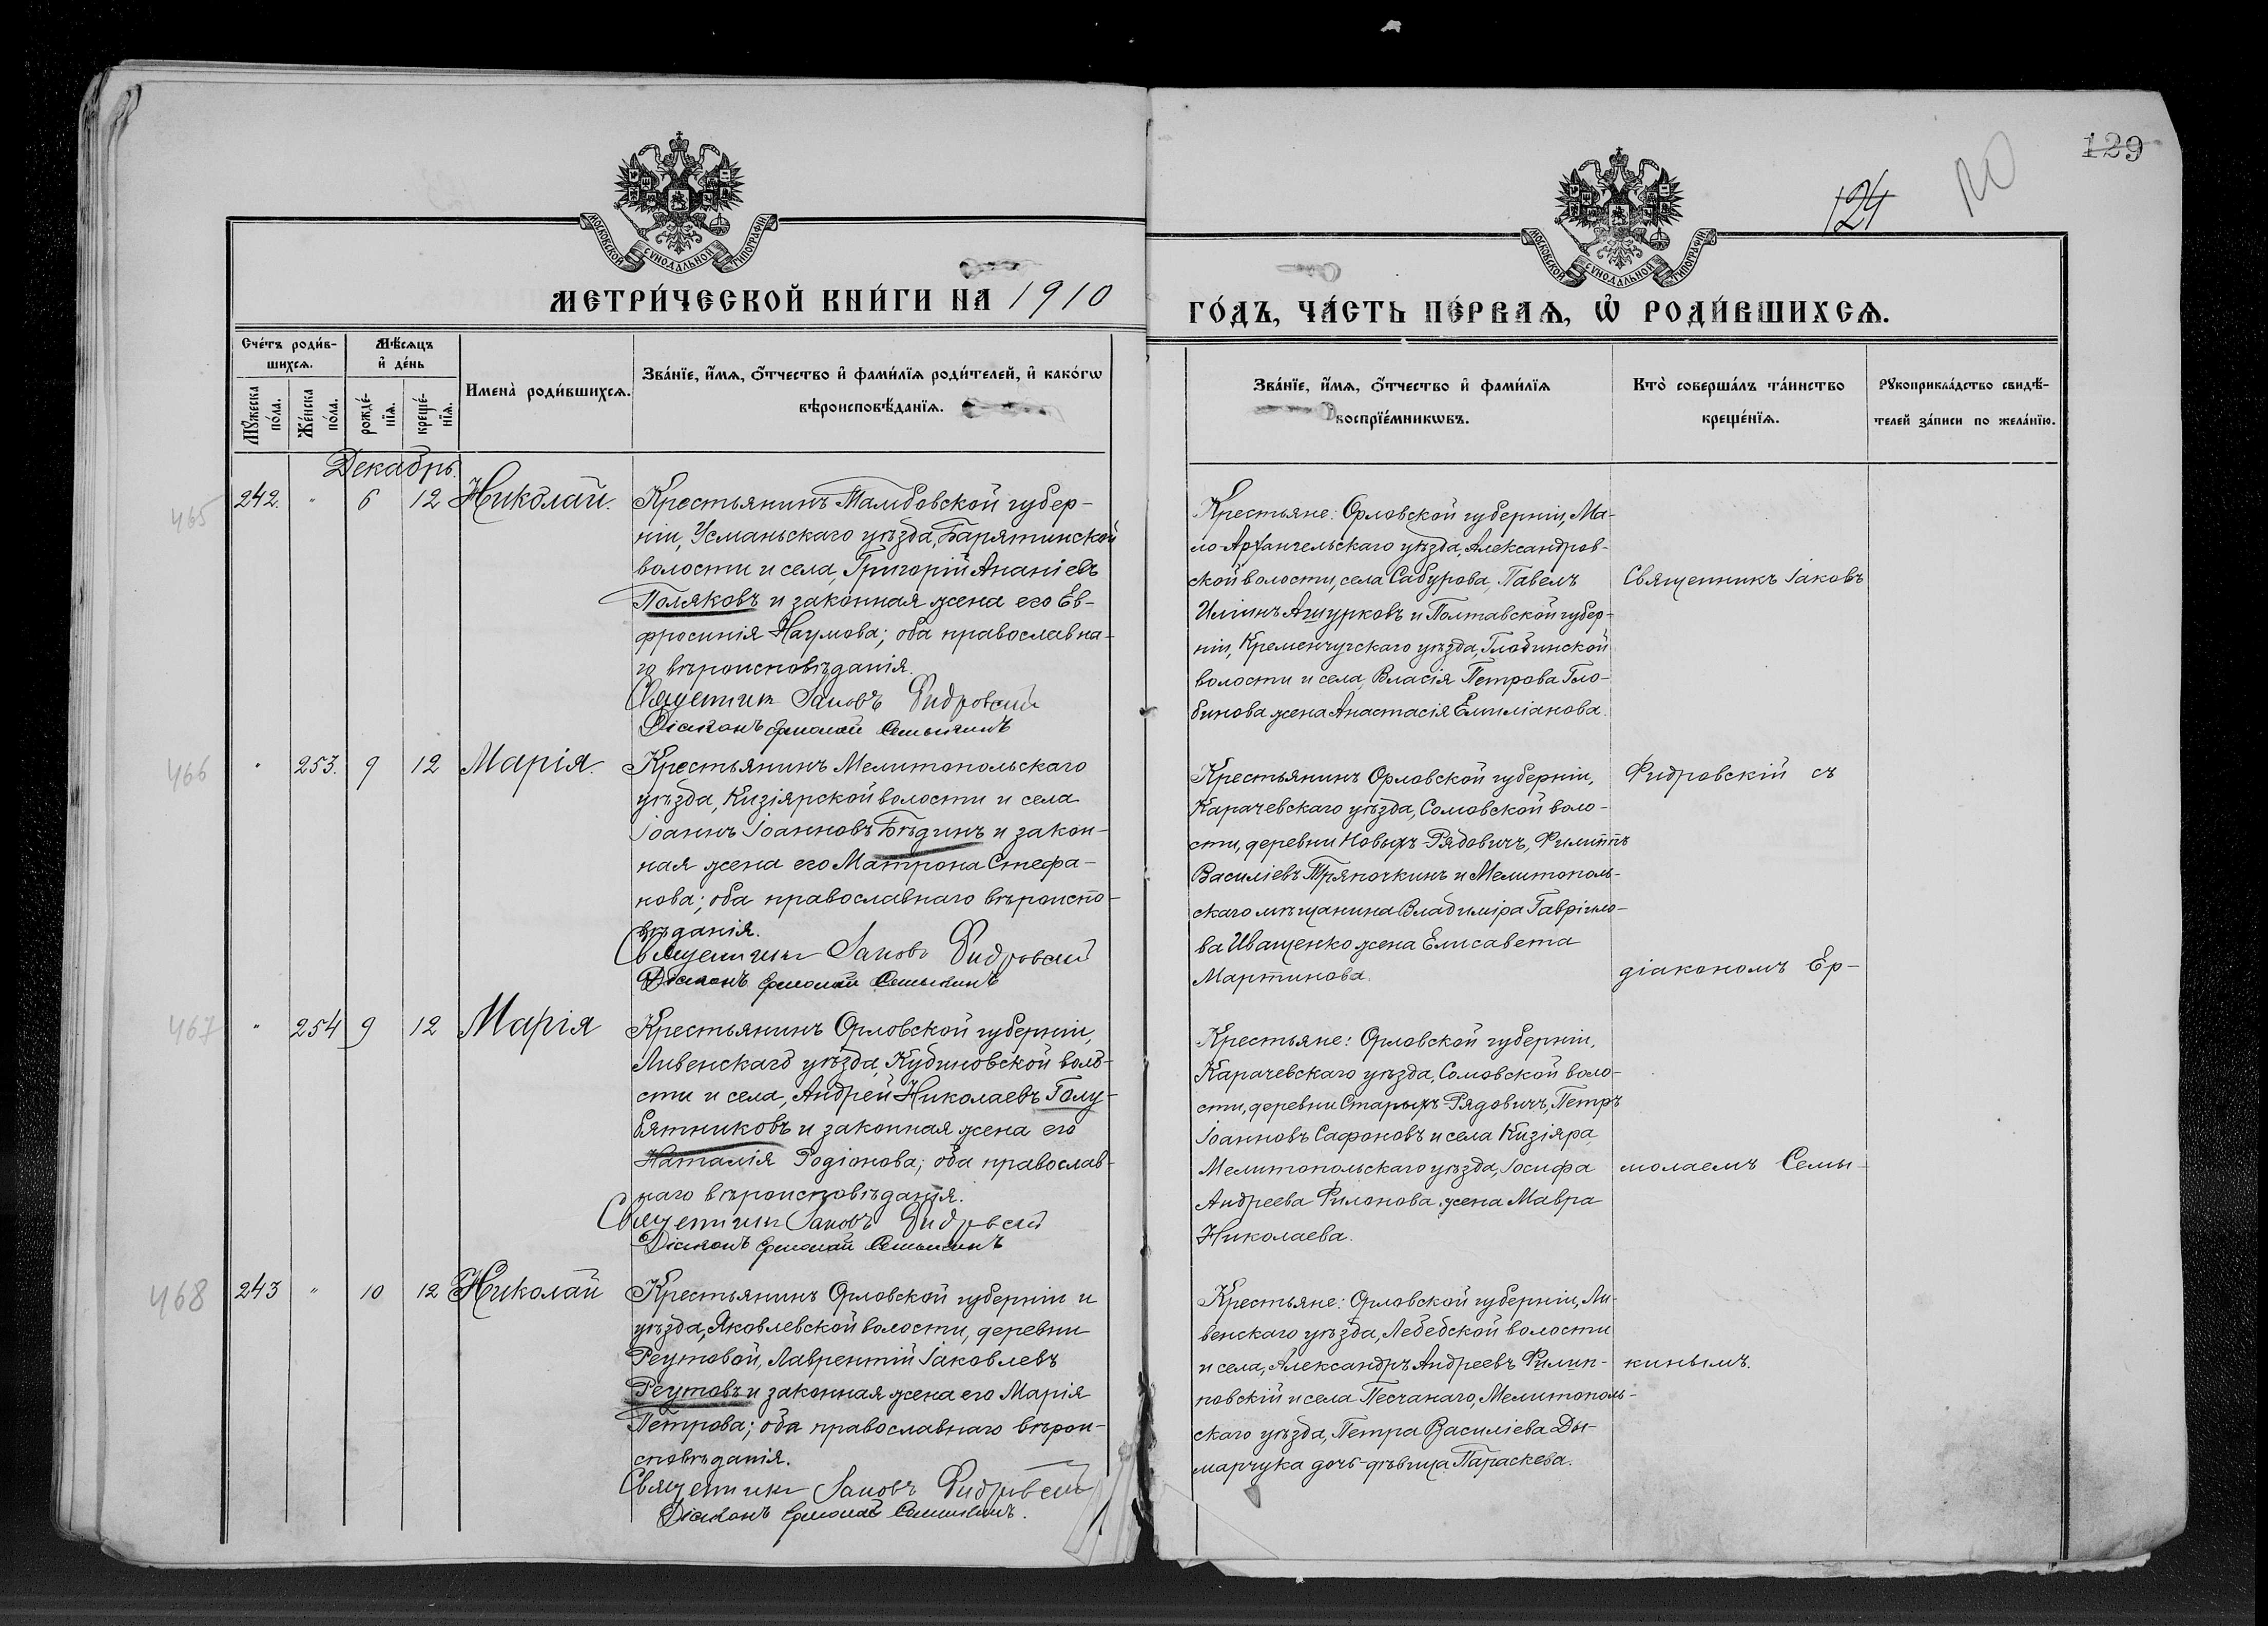 129
124
МОСКОВСКОЙ СѴНОДАЛЬНОЙ ТИПОГРАФІИ
МОСКОВСКОЙ СѴНОДАЛЬНОЙ ТИПОГРАФІИ
МЕТРИ́ЧЕСКОЙ КНИ́ГИ НА 1910
ГО́ДЪ, ЧА́СТЬ ПЕ́РВАѦ, Ѡ҆ РОДИ́ВШИХСѦ.
Сче́тъ роди́в-
шихсѧ.
Мꙋ́жеска по́ла.
Же́нска по́ла.
Мѣ́сѧцъ
и҆ де́нь
рожде́-
нїѧ.
креще́-
нїѧ.
Имена̀ роди́вшихсѧ.
Зва́нїе, и҆́мѧ, ѻ҆́тчество и҆ фами́лїѧ роди́телей, и҆ како́гѡ
вѣроисповѣ́данїѧ.
Зва́нїе, и҆́мѧ, ѻ҆́тчество и҆ фами́лїѧ
воспрїе́мникѡвъ.
Кто̀ соверша́лъ та́инство
креще́нїѧ.
Рꙋкоприкла́дство свидѣ́-
телей за́писи по жела́нїю.
Декабрь.
465
242. " 6 12 Николай.
Крестьянинъ Тамбовской губер-
ніи, Усманьскаго уѣзда, Барятинской
волости и села, Григорій Ананіевъ
Поляковъ и законная жена его Ев-
фросинія Наумова; оба православна-
го вѣроисповѣданія.
Священникъ Іаковъ Фидровскій
Діаконъ Ермолай Семыкинъ
Крестьяне: Орловской губерніи, Ма-
ло-Архангельскаго уѣзда, Александров-
ской волости, села Сабурова, Павелъ
Иліинъ Ашурковъ и Полтавской губер-
ніи, Кременчугскаго уѣзда, Глобинской
волости и села, Власія Петрова Гло-
бинова жена Анастасія Емиліанова.
Священникъ Іаковъ
466
" 253. 9 12 Марія.
Крестьянинъ Мелитопольскаго
уѣзда, Кизіярской волости и села
Іоаннъ Іоанновъ Бѣдинъ и закон-
ная жена его Матрона Стефа-
нова; оба православнаго вѣроиспо-
вѣданія.
Священникъ Іаковъ Фидровскій
Діаконъ Ермолай Семыкинъ
Крестьянинъ Орловской губерніи,
Карачевскаго уѣзда, Сомовской воло-
сти, деревни Новыхъ-Рядовичъ, Филиппъ
Василіевъ Тряпочкинъ и Мелитополь-
скаго мѣщанина Владиміра Гавріило-
ва Иващенко жена Елисавета
Мартинова.
Фидровскій съ
діакономъ Ер-
467
" 254 9 12 Марія
Крестьянинъ Орловской губерніи,
Ливенскаго уѣзда, Кудиновской воло-
сти и села, Андрей Николаевъ Голу-
бятниковъ и законная жена его
Наталія Родіонова; оба православ-
наго вѣроисповѣданія.
Священникъ Іаковъ Фидровскій
Діаконъ Ермолай Семыкинъ
Крестьяне: Орловской губерніи,
Карачевскаго уѣзда, Сомовской воло-
сти, деревни Старыхъ-Рядовичъ, Петръ
Іоанновъ Сафоновъ и села Кизіяра,
Мелитопольскаго уѣзда, Іосифа
Андреева Филонова жена Мавра
Николаева.
молаемъ Семы-
468
243 " 10 12 Николай
Крестьянинъ Орловской губерніи и
уѣзда, Яковлевской волости, деревни
Реутовой, Лаврентій Іаковлевъ
Реутовъ и законная жена его Марія
Петрова; оба православнаго вѣрои-
сповѣданія.
Священникъ Іаковъ Фидровскій
Діаконъ Ермолай Семыкинъ.
Крестьяне: Орловской губерніи, Ли-
венскаго уѣзда, Лебебской волости
и села, Александръ Андреевъ Филип-
повскій и села Песчанаго, Мелитополь-
скаго уѣзда, Петра Василіева Ды-
марчука дочь-дѣвица Параскева.
кинымъ.